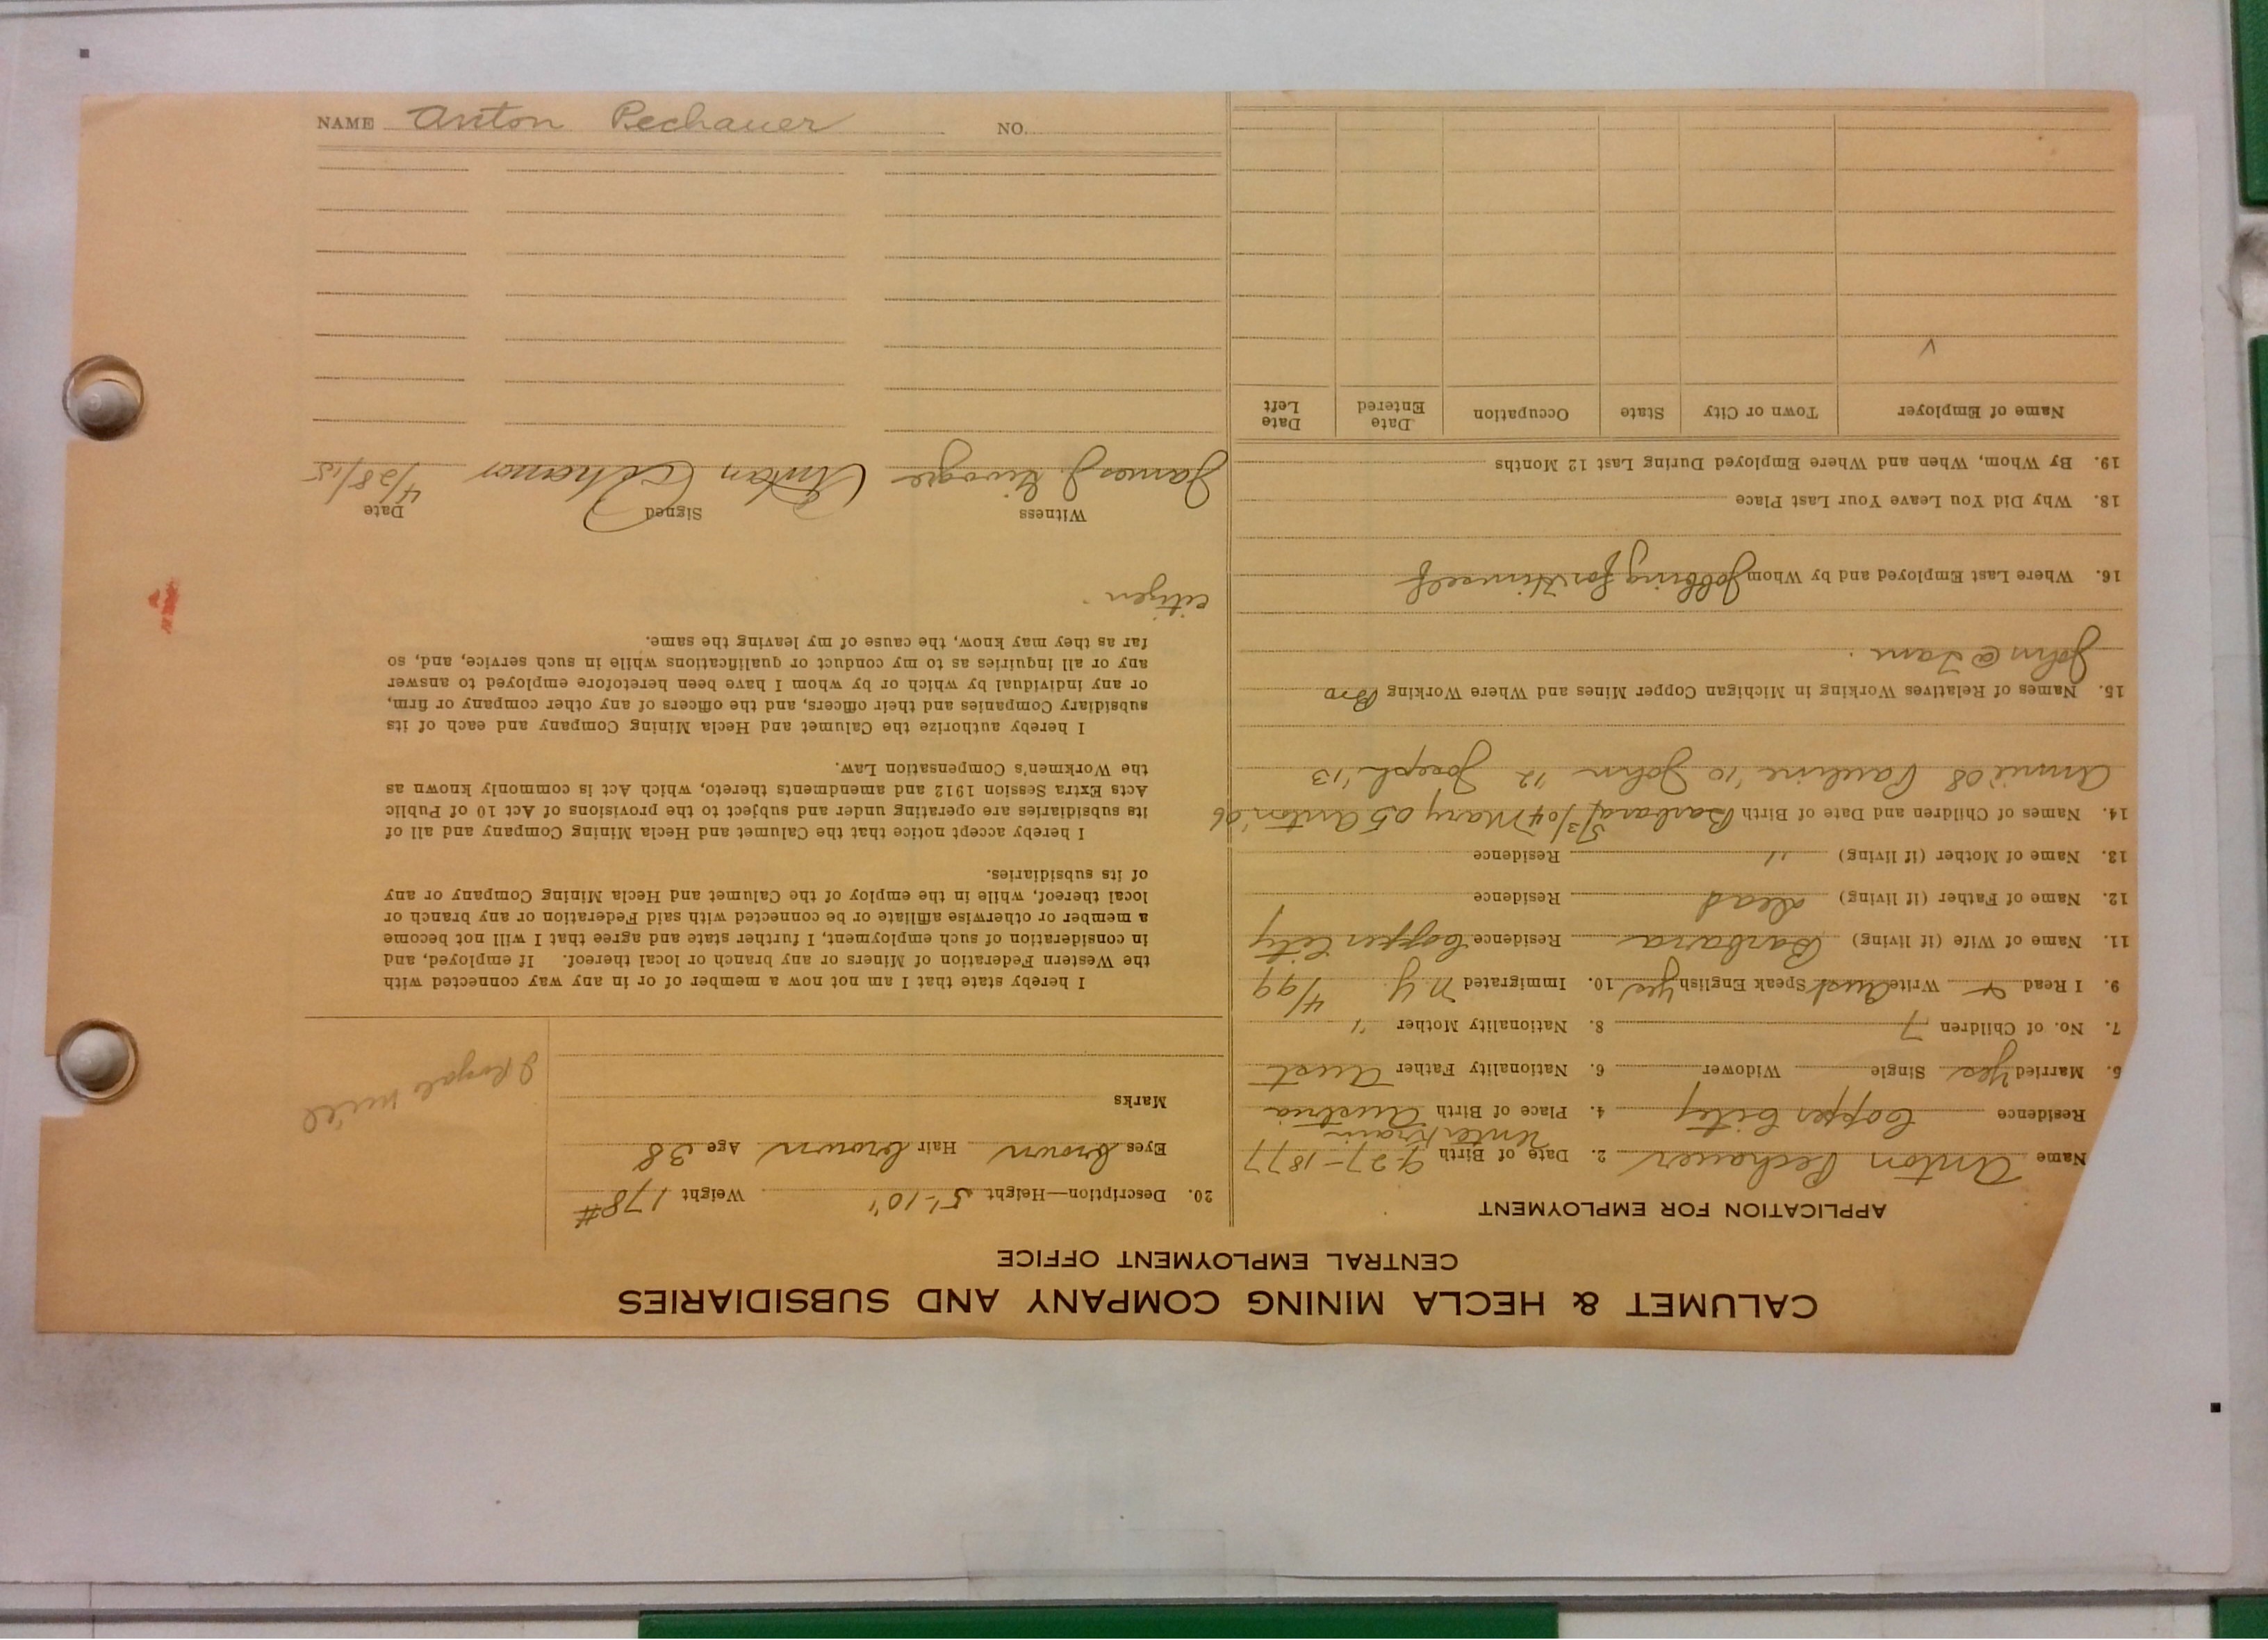 CALUMET & HECLA MINING COMPANY AND SUBSIDIARIES
CENTRAL EMPLOYMENT OFFICE
APPLICATION FOR EMPLOYMENT
Name Anton Pechauer 2. Date of Birth 9-27-1877
Unterkrain
Residence Copper City 4. Place of Birth Austria
5. Married Yes Single Widower 6. Nationality Father Aust
7. No. of Children 7 8. Nationality Mother "
9. I Read & Write Aust Speak English Yes 10. Immigrated N.Y. 4/99
11. Name of Wife (if living) Barbara Residence Copper City
12. Name of Father (if living) dead Residence
13. Name of Mother (if living) " Residence
14. Names of Children and Date of Birth Barbara 5/3/04 Mary 05 Anton '06
Annie '08 Pauline '10 John '12 Joseph '13
15. Names of Relatives Working in Michigan Copper Mines and Where Working Bro
John @ Tam.
16. Where Last Employed and by Whom Jobbing for Himself
18. Why Did You Leave Your Last Place
19. By Whom, When and Where Employed During Last 12 Months
Name of Employer Town or City State Occupation Date Entered Date Left
20. Description—Height 5'-10" Weight 178#
Eyes brown Hair brown Age 38
Marks
I Royale Mill
I hereby state that I am not now a member of or in any way connected with
the Western Federation of Miners or any branch or local thereof. If employed, and
in consideration of such employment, I further state and agree that I will not become
a member or otherwise affiliate or be connected with said Federation or any branch or
local thereof, while in the employ of the Calumet and Hecla Mining Company or any
of its subsidiaries.
I hereby accept notice that the Calumet and Hecla Mining Company and all of
its subsidiaries are operating under and subject to the provisions of Act 10 of Public
Acts Extra Session 1912 and amendments thereto, which Act is commonly known as
the Workmen's Compensation Law.
I hereby authorize the Calumet and Hecla Mining Company and each of its
subsidiary Companies and their officers, and the officers of any other company or firm,
or any individual by which or by whom I have been heretofore employed to answer
any or all inquiries as to my conduct or qualifications while in such service, and, so
far as they may know, the cause of my leaving the same.
citizen
Witness Signed Date
James J. Anton 4/28/15
NAME Anton Pechauer NO.